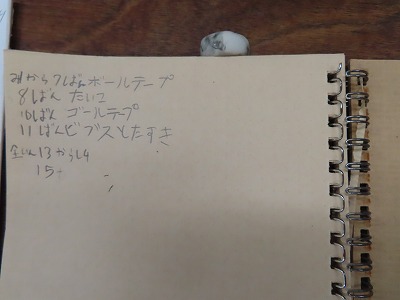 から7ばんボールテープ
8ばん たいこ
10ばん ゴールテープ
11ばんビブスとたすき
13から14
15